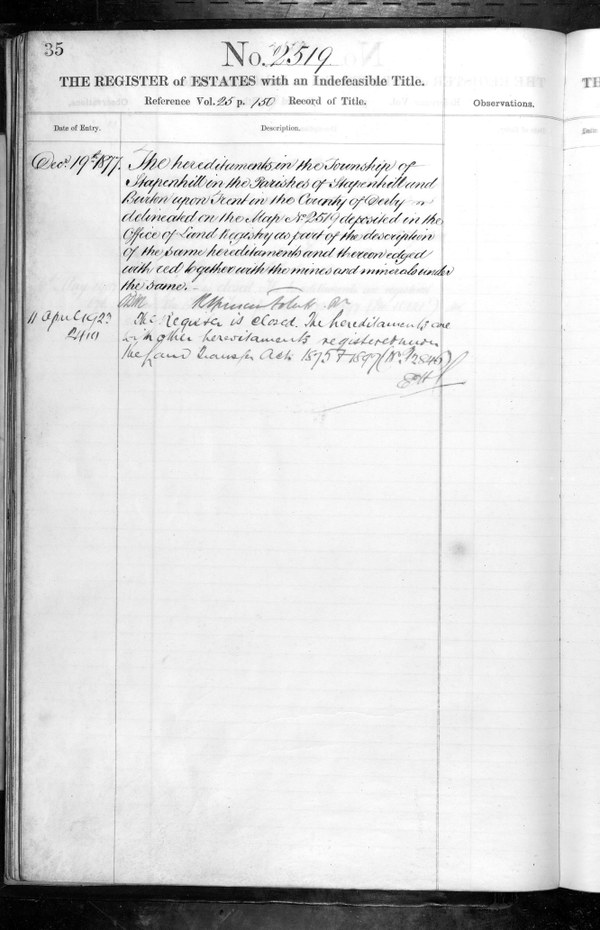 35
No. 2519
THE REGISTER of ESTATES with an Indefeasible Title.
Reference Vol. 25 p. 150 Record of Title.
Observations.
Date of Entry.
Description.
Decr. 19th 1877. The hereditaments in the Township of
Stapenhill in the Parishes of Stapenhill and
Burton upon Trent in the County of Derby
delineated on the Map No 2519 deposited in the
Office of Land Registry as part of the description
of the same hereditaments and thereon edged
with red together with the mines and minerals under
the same.
11 April 1923 The Register is closed. The hereditaments are
with other hereditaments registered under
the Land Transfer Acts 1875 & 1897
TH
Date